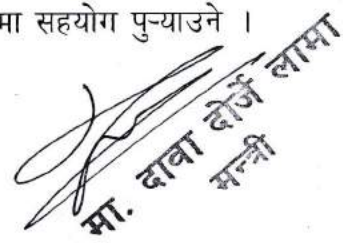 मा सहयोग पुऱ्याउने ।
मा. दावा दोर्जे लामा
मन्त्री